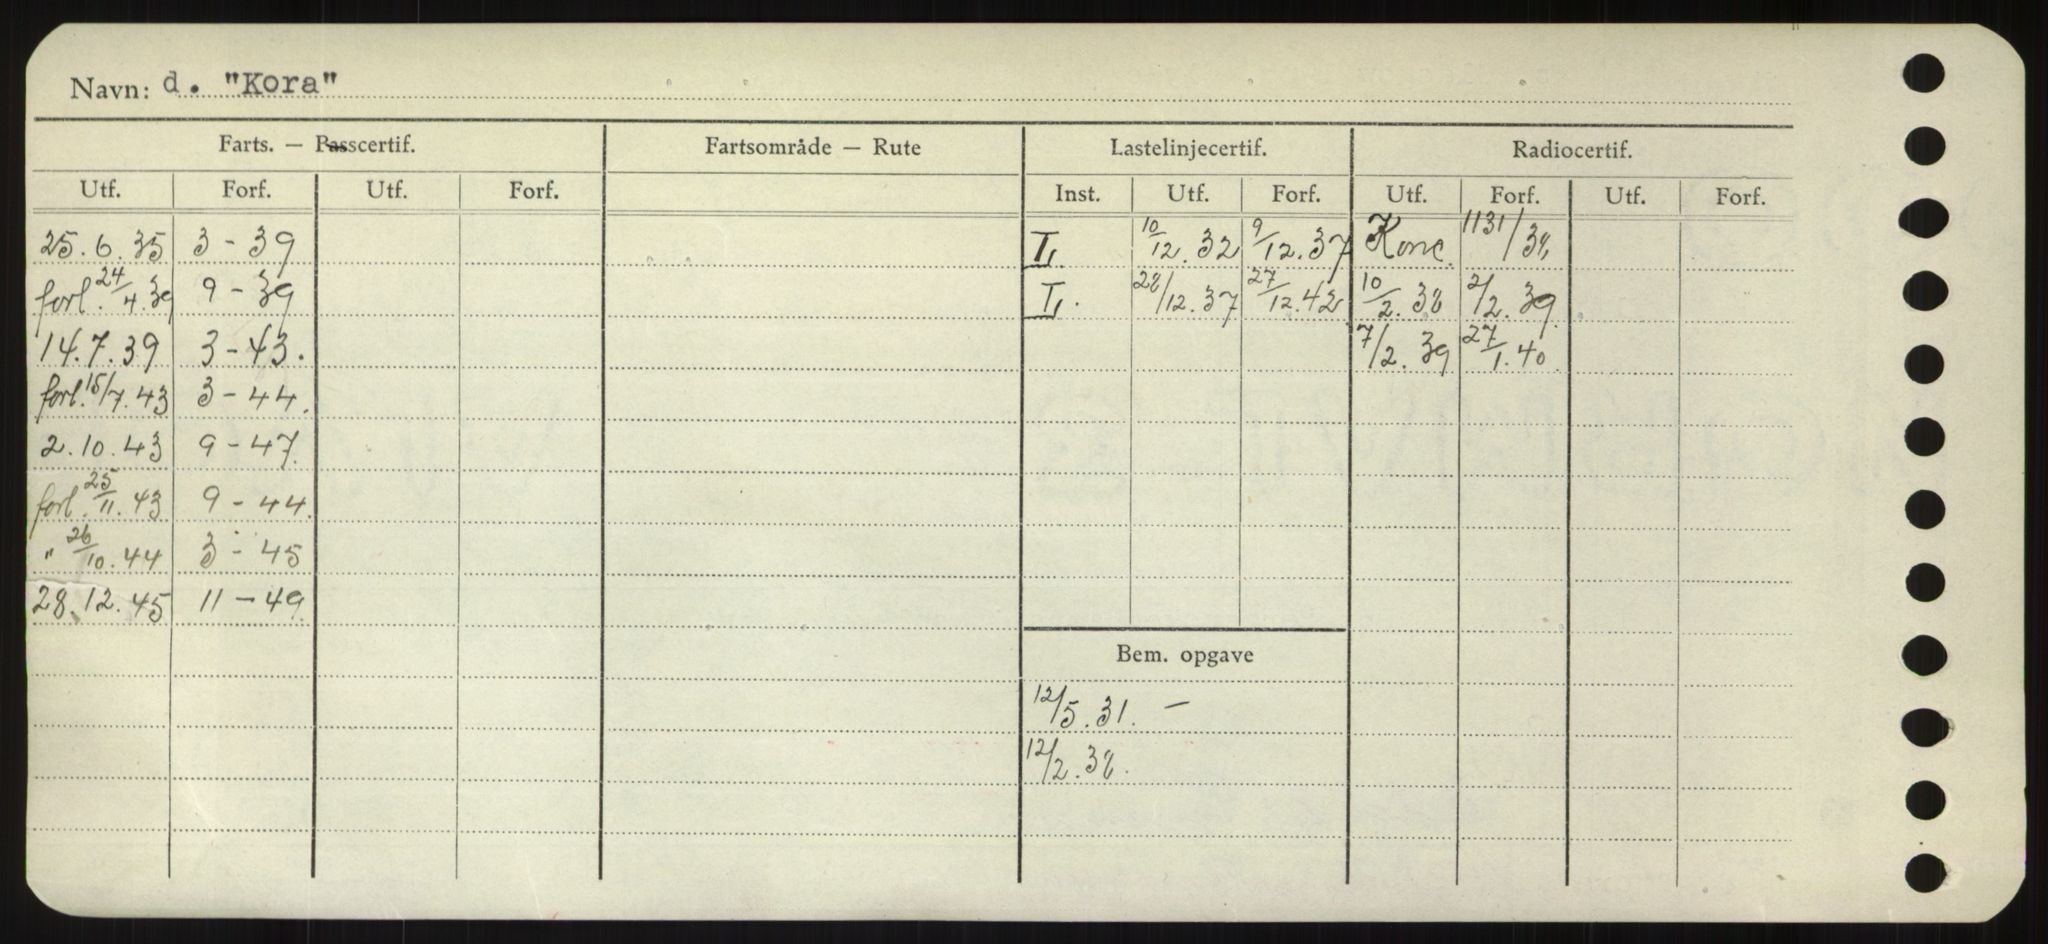 Navn: d. "Kora"
Farts. — Passcertif. Fartsområde — Rute Lastelinjecertif. Radiocertif.
Utf. Forf. Utf. Forf. Inst. Utf. Forf. Utf. Forf. Utf. Forf.
25.6.35 3-39 10/12.32 9/12.37 1131/38
forl. 24/4.39 9-39 28/12.37 27/12.42 10/2.38 2/2.39
14.7.39 3-43. 7/2.39 27/1.40
forl. 15/7.43 3-44.
2.10.43 9-47
forl. 25/11.43 9-44.
" 26/10.44 3-45
28.12.45 11-49
Bem. opgave
12/5.31. —
12/2.38.